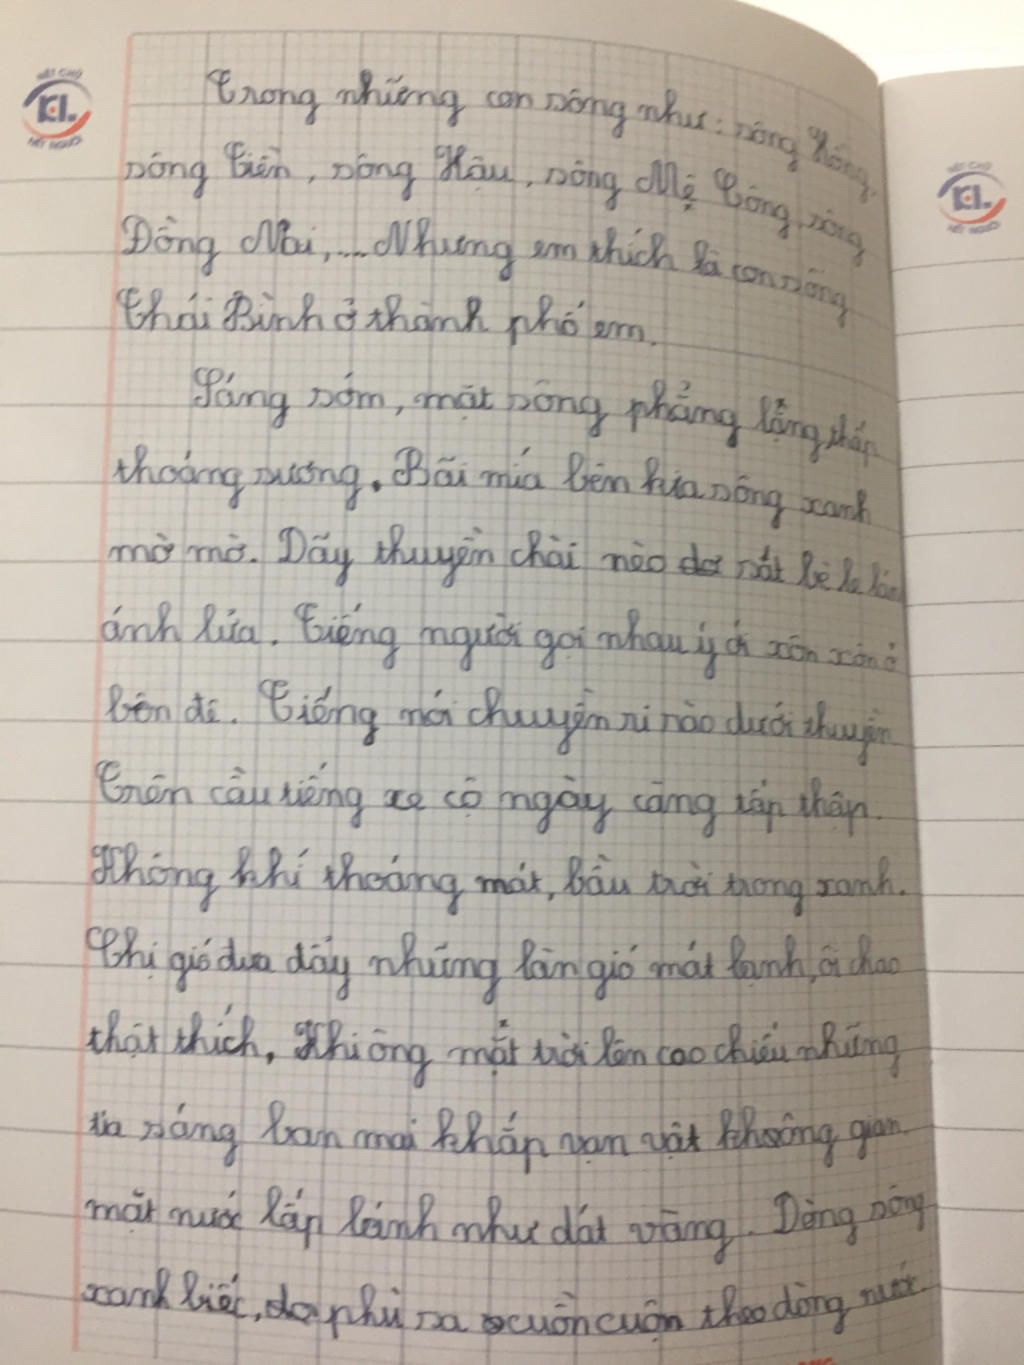 NÉT CHỮ
KL
NẾT NGƯỜI
NÉT CHỮ
KL
NẾT NGƯỜI
Trong những con sông như: sông Hồng,
sông Tiền, sông Hậu, sông Mê Công, sông
Đồng Nai,... Nhưng em thích là con sông
Thái Bình ở thành phố em.
Sáng sớm, mặt sông phẳng lặng thấp
thoáng sương. Bãi mía bên kia sông xanh
mờ mờ. Dãy thuyền chài nèo sát bè
ánh lửa. Tiếng người gọi nhau ý ới xôn xao ở
bên đê. Tiếng nói chuyện rì rào dưới thuyền
Trên cầu tiếng xe cộ ngày càng tấp thập.
Không khí thoáng mát, bầu trời trong xanh.
Chị gió đưa đẩy những làn gió mát lạnh, ôi chao
thật thích. Khi ông mặt trời lên cao chiếu những
tia sáng ban mai khắp vạn vật không gian.
mặt nước lấp lánh như dát vàng. Dòng sông
xanh biếc, phù sa cuồn cuộn theo dòng nước.